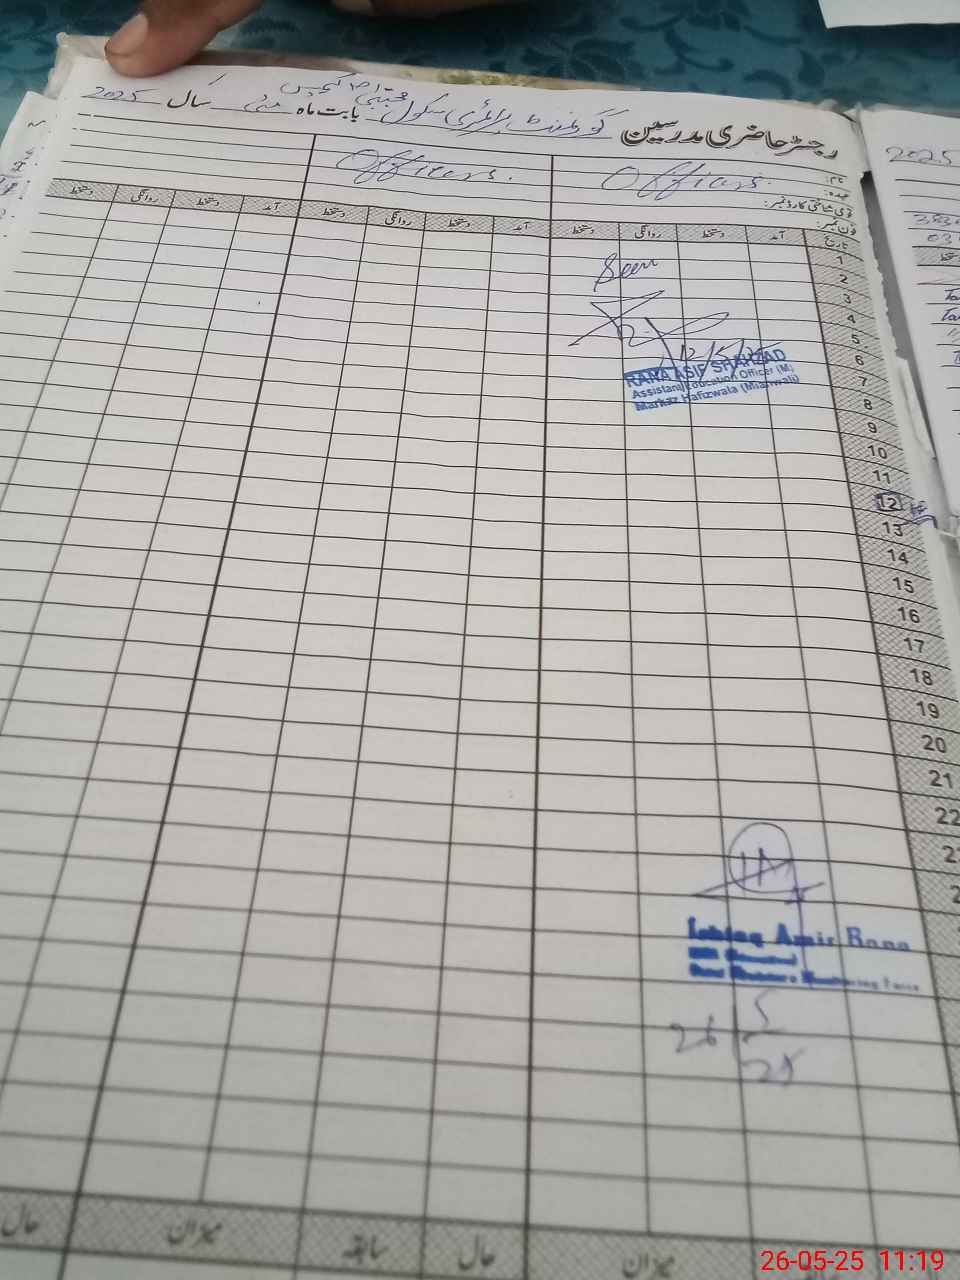 رجسٹر حاضری مدرسین گورنمنٹ پرائمری سکول بابت ماہ مئی سال 2025
نام:
عہدہ:
قومی شناختی کارڈ نمبر:
فون نمبر:
Officers. Officers.
تاریخ آمد دستخط روانگی دستخط آمد دستخط روانگی دستخط آمد دستخط روانگی دستخط
1
2
3
4
5
6
7
8
9
10
11
12
13
14
15
16
17
18
19
20
21
22
Seen
12/5/25
RANA ASIF SHAHZAD
Assistant Education Officer (M)
Markaz Hafizwala (Mianwali)
Amir Rana
26/5/25
میزان حال سابقہ میزان حال
2025
26-05-25 11:19